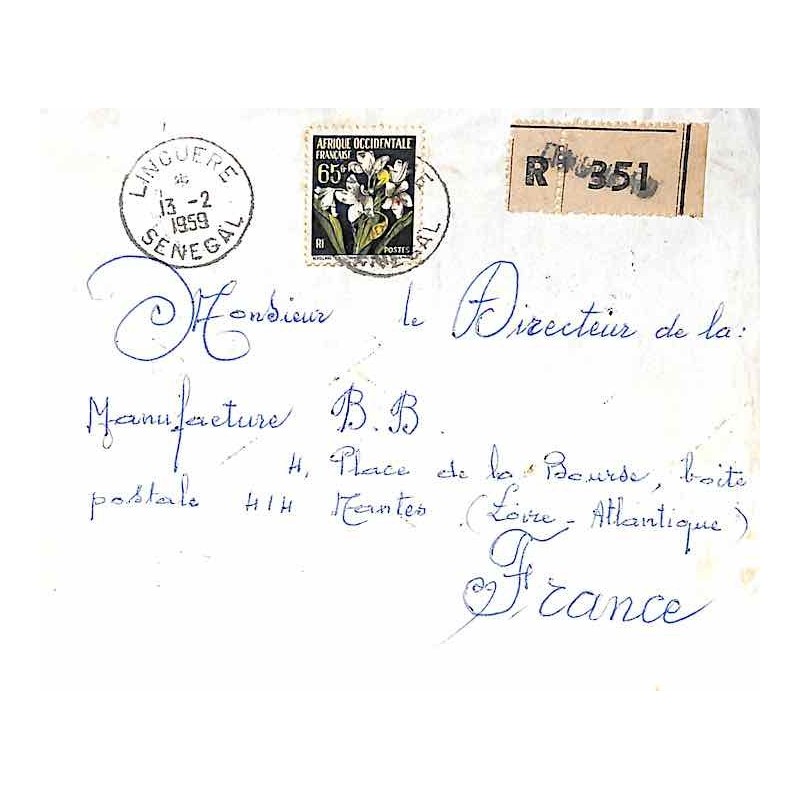 LINGUERE
13 -2
1959
SENEGAL
AFRIQUE OCCIDENTALE
FRANÇAISE
65F
RI
POSTES
SENEGAL
R 351
Monsieur le Directeur de la:
Manufacture B.B.
4, Place de la Bourse, boite
postale 414 Nantes (Loire-Atlantique)
France